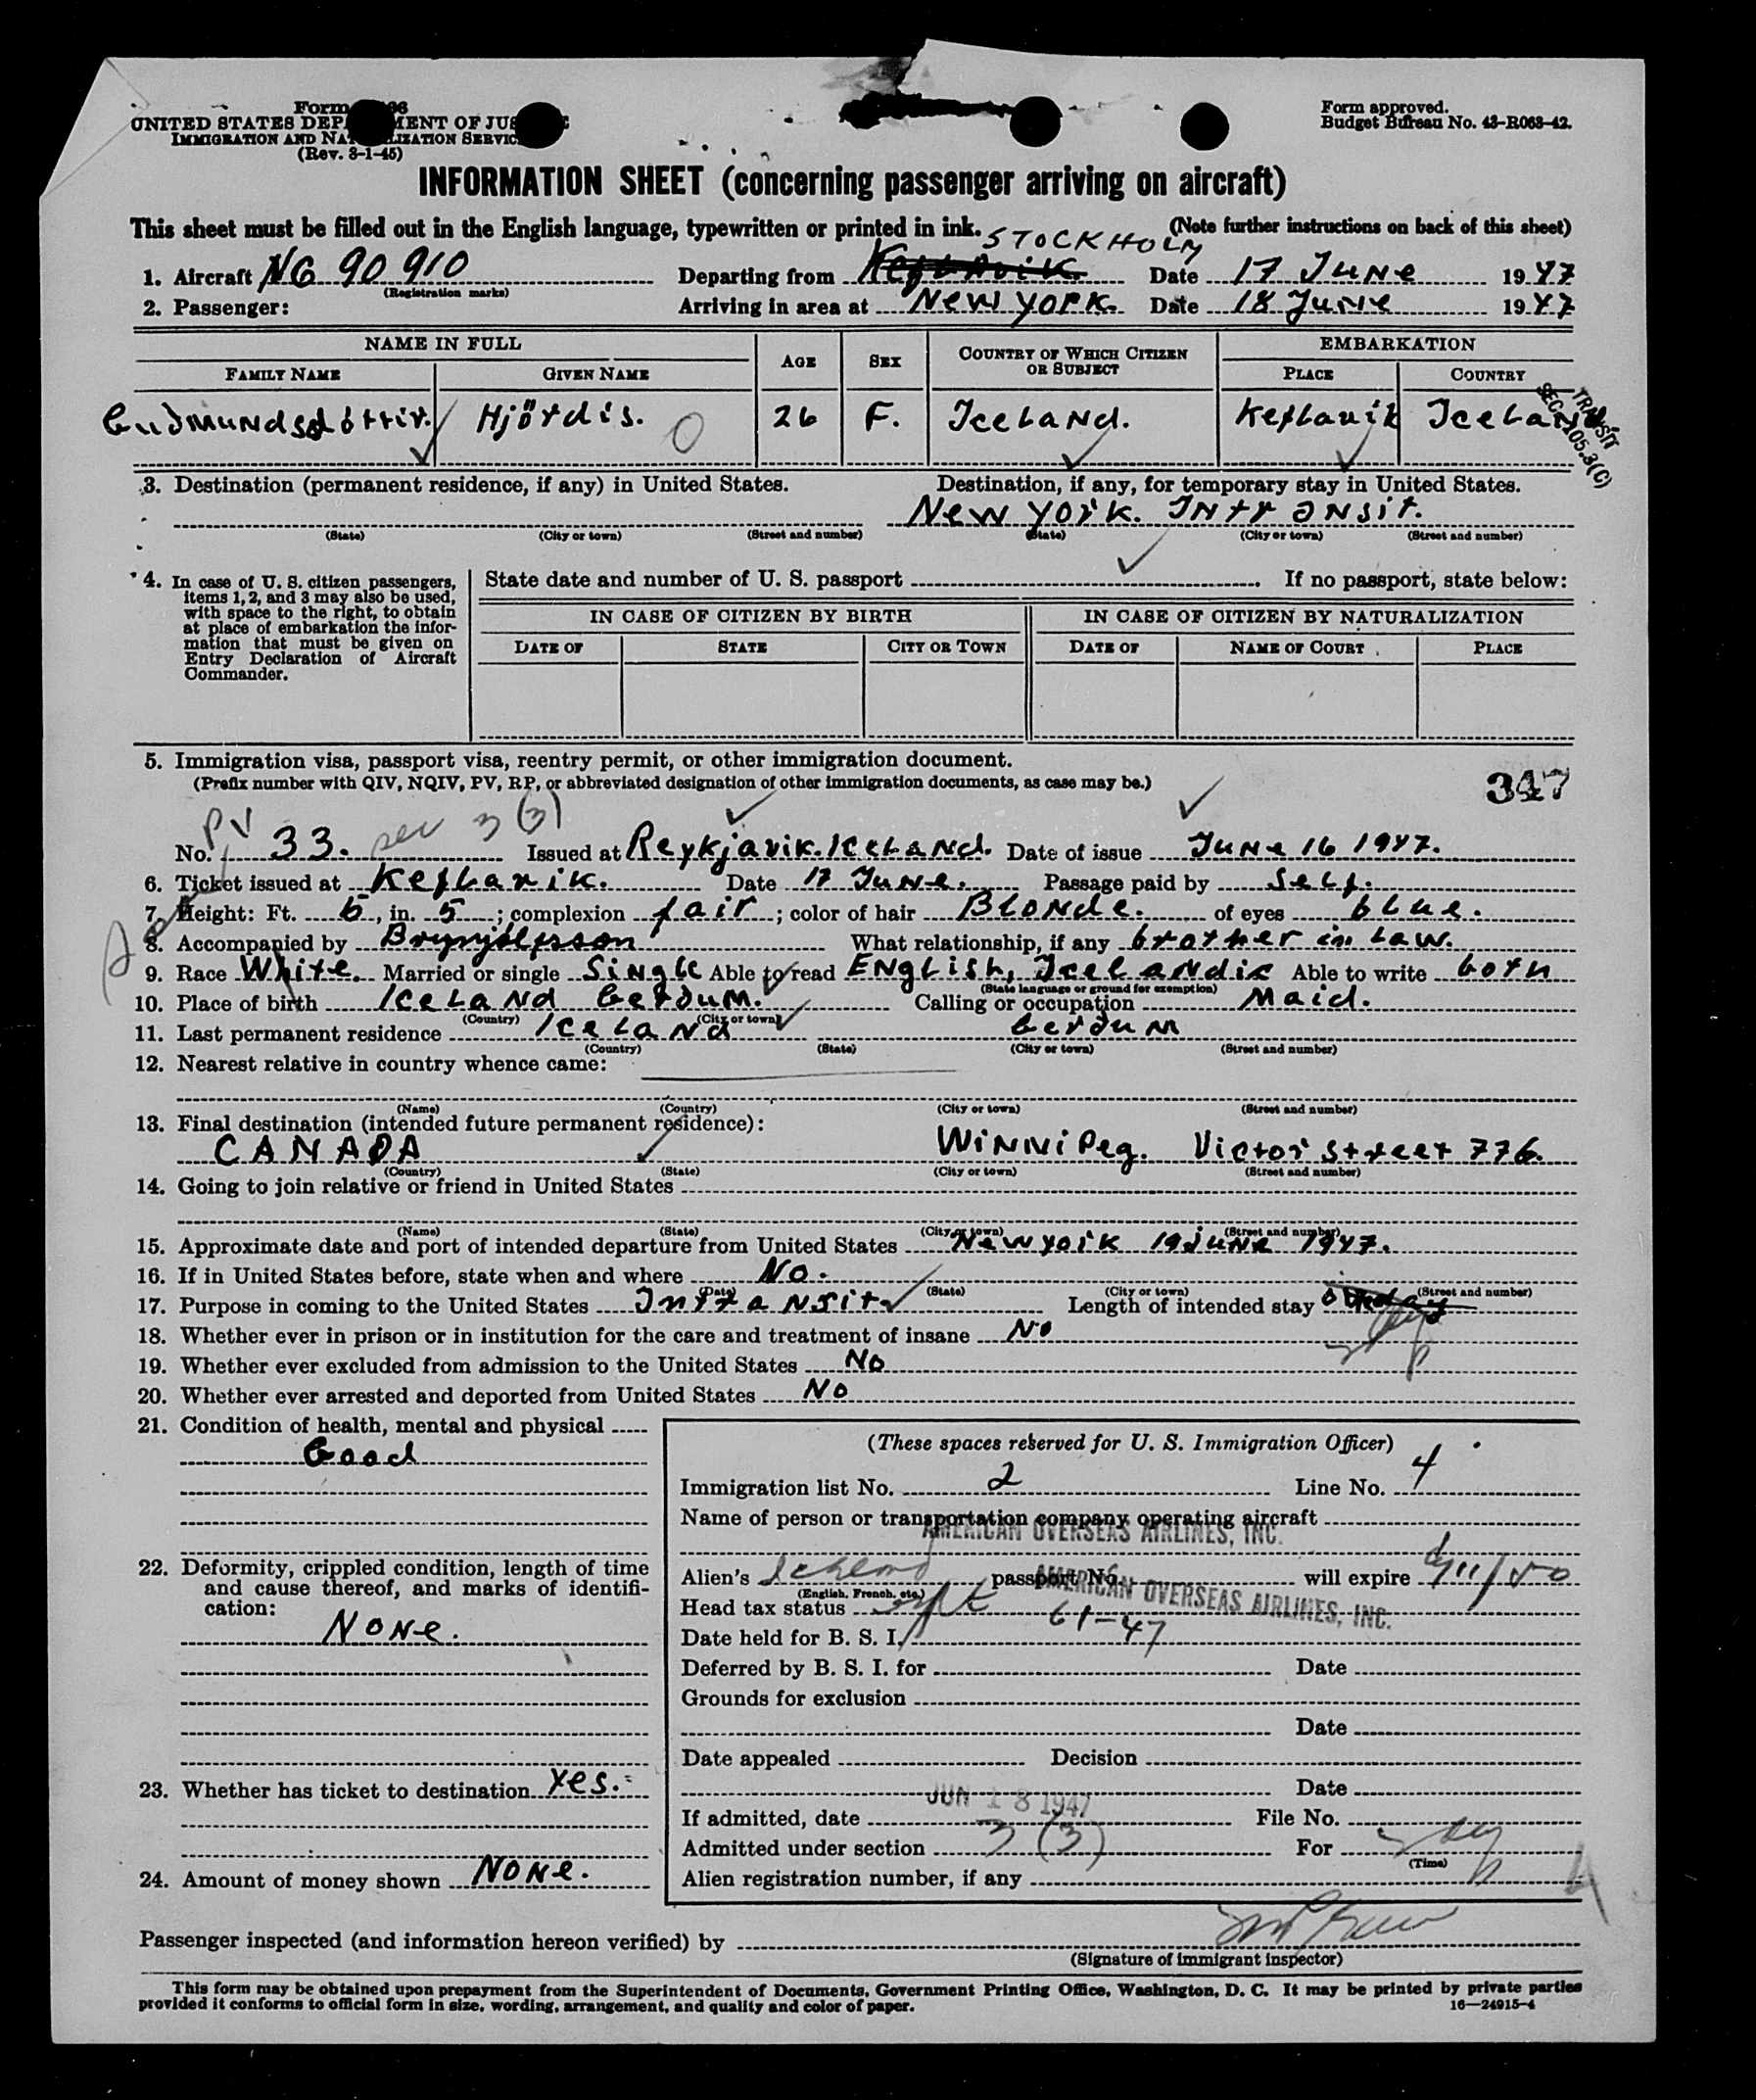 Form
UNITED STATES DEP MENT OF JUS
IMMIGRATION AND NA LIZATION SERVIC
(Rev. 3-1-45)
Form approved.
Budget Bureau No. 43-R063-42.
INFORMATION SHEET (concerning passenger arriving on aircraft)
This sheet must be filled out in the English language, typewritten or printed in ink. (Note further instructions on back of this sheet)
STOCKHOLM
1. Aircraft NC 90910 Departing from Keflavik Date 17 June 1947
(Registration marks)
2. Passenger: Arriving in area at New York. Date 18 June 1947
NAME IN FULL AGE SEX COUNTRY OF WHICH CITIZEN OR SUBJECT EMBARKATION
FAMILY NAME GIVEN NAME PLACE COUNTRY
Gudmundsdóttir. Hjördis. 0 26 F. Iceland. Keflavik Iceland
TRANSIT
SEC. 105.3(C)
3. Destination (permanent residence, if any) in United States. Destination, if any, for temporary stay in United States.
New York. Intransit.
(State) (City or town) (Street and number) (State) (City or town) (Street and number)
4. In case of U. S. citizen passengers, items 1, 2, and 3 may also be used, with space to the right, to obtain at place of embarkation the information that must be given on Entry Declaration of Aircraft Commander.
State date and number of U. S. passport If no passport, state below:
IN CASE OF CITIZEN BY BIRTH IN CASE OF CITIZEN BY NATURALIZATION
DATE OF STATE CITY OR TOWN DATE OF NAME OF COURT PLACE
5. Immigration visa, passport visa, reentry permit, or other immigration document.
(Prefix number with QIV, NQIV, PV, RP, or abbreviated designation of other immigration documents, as case may be.)
347
PV sec 3 (3)
No. 33. Issued at Reykjavik. Iceland. Date of issue June 16 1947.
6. Ticket issued at Keflavik. Date 17 June. Passage paid by Self.
7. Height: Ft. 5, in. 5; complexion fair; color of hair Blonde. of eyes blue.
8. Accompanied by Brynjólfsson What relationship, if any brother in law.
9. Race White. Married or single Single Able to read English, Icelandic Able to write both
(State language or ground for exemption)
10. Place of birth Iceland Gerdum. Calling or occupation Maid.
(Country) (City or town)
11. Last permanent residence Iceland Gerdum
(Country) (State) (City or town) (Street and number)
12. Nearest relative in country whence came:
(Name) (Country) (City or town) (Street and number)
13. Final destination (intended future permanent residence):
CANADA Winnipeg. Victor Street 776.
(Country) (State) (City or town) (Street and number)
14. Going to join relative or friend in United States
(Name) (State) (City or town) (Street and number)
15. Approximate date and port of intended departure from United States New York 19 June 1947.
16. If in United States before, state when and where No.
(Date) (State) (City or town) (Street and number)
17. Purpose in coming to the United States Intransit Length of intended stay
18. Whether ever in prison or in institution for the care and treatment of insane No
19. Whether ever excluded from admission to the United States No
20. Whether ever arrested and deported from United States No
21. Condition of health, mental and physical
Good
22. Deformity, crippled condition, length of time and cause thereof, and marks of identification:
None.
23. Whether has ticket to destination Yes.
24. Amount of money shown None.
(These spaces reserved for U. S. Immigration Officer)
Immigration list No. 2 Line No. 4
Name of person or transportation company operating aircraft
AMERICAN OVERSEAS AIRLINES, INC.
Alien's passport No. will expire
(English, French, etc.)
AMERICAN OVERSEAS AIRLINES, INC.
Head tax status 61-47
Date held for B. S. I.
Deferred by B. S. I. for Date
Grounds for exclusion
Date
Date appealed Decision
Date
JUN 18 1947
If admitted, date File No.
Admitted under section 3 (3) For
(Time)
Alien registration number, if any
Passenger inspected (and information hereon verified) by
(Signature of immigrant inspector)
This form may be obtained upon prepayment from the Superintendent of Documents, Government Printing Office, Washington, D. C. It may be printed by private parties
provided it conforms to official form in size, wording, arrangement, and quality and color of paper. 16—24915-4